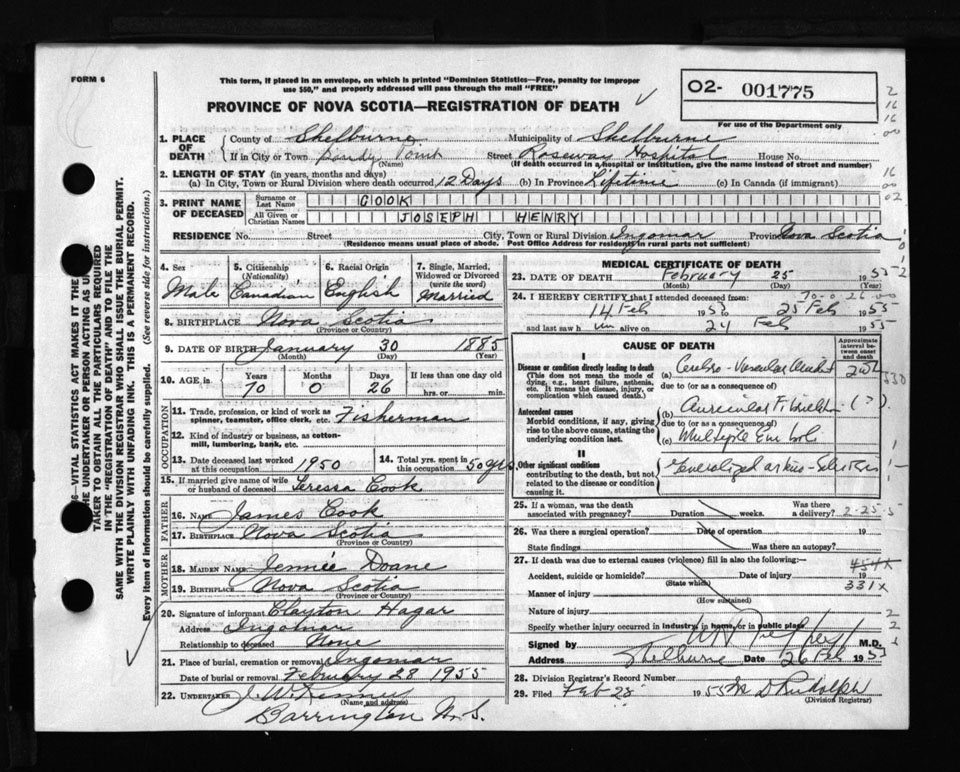 FORM 6
This form, if placed in an envelope, on which is printed "Dominion Statistics—Free, penalty for improper
use $50," and properly addressed will pass through the mail "FREE"
PROVINCE OF NOVA SCOTIA—REGISTRATION OF DEATH
02- 001775
For use of the Department only
1. PLACE OF DEATH County of Shelburne Municipality of Shelburne
If in City or Town Sandy Point Street Roseway Hospital House No.
(Name) (If death occurred in a hospital or institution, give the name instead of street and number)
2. LENGTH OF STAY (in years, months and days)
(a) In City, Town or Rural Division where death occurred 12 Days (b) In Province Lifetime (c) In Canada (if immigrant)
3. PRINT NAME OF DECEASED Surname or Last Name COOK
All Given or Christian Names JOSEPH HENRY
RESIDENCE No. Street City, Town or Rural Division Ingomar Province Nova Scotia
(Residence means usual place of abode. Post Office Address for residents in rural parts not sufficient)
4. Sex Male
5. Citizenship (Nationality) Canadian
6. Racial Origin English
7. Single, Married, Widowed or Divorced (write the word) Married
8. BIRTHPLACE Nova Scotia
(Province or Country)
9. DATE OF BIRTH January 30 1885
(Month) (Day) (Year)
10. AGE in Years 70 Months 0 Days 26 If less than one day old hrs. or min.
OCCUPATION
11. Trade, profession, or kind of work as spinner, teamster, office clerk, etc. Fisherman
12. Kind of industry or business, as cotton-mill, lumbering, bank, etc.
13. Date deceased last worked at this occupation 1950
14. Total yrs. spent in this occupation 50 yrs.
15. If married give name of wife or husband of deceased Teresia Cook
FATHER
16. NAME James Cook
17. BIRTHPLACE Nova Scotia
(Province or Country)
MOTHER
18. MAIDEN NAME Jennie Doane
19. BIRTHPLACE Nova Scotia
(Province or Country)
20. Signature of informant Clayton Hagar
Address Ingomar
Relationship to deceased None
21. Place of burial, cremation or removal Ingomar
Date of burial or removal February 28 1955
22. UNDERTAKER J. W.
(Name and address)
Barrington N.S.
MEDICAL CERTIFICATE OF DEATH
23. DATE OF DEATH February 25 1955
(Month) (Day)
70-0-26-00
24. I HEREBY CERTIFY that I attended deceased from:
14 Feb 1955 to 25 Feb 1955
and last saw him alive on 24 Feb 1955
CAUSE OF DEATH
Approximate interval between onset and death
I
Disease or condition directly leading to death (a) Cerebro-Vascular Accident
(This does not mean the mode of dying, e.g., heart failure, asthenia, etc. It means the disease, injury, or complication which caused death.)
due to (or as a consequence of)
Antecedent causes (b) Auricular Fibrillation (?)
Morbid conditions, if any, giving rise to the above cause, stating the underlying condition last.
due to (or as a consequence of)
(c) Multiple Emboli
II
Other significant conditions Generalized arterio-Sclerosis
contributing to the death, but not related to the disease or condition causing it.
25. If a woman, was the death associated with pregnancy? Duration weeks. Was there a delivery?
26. Was there a surgical operation? Date of operation 19
State findings Was there an autopsy?
27. If death was due to external causes (violence) fill in also the following:
Accident, suicide or homicide? Date of injury 19
(State which)
331X
Manner of injury
(How sustained)
Nature of injury
Specify whether injury occurred in industry, in home, or in public place
Signed by M.D.
Address Shelburne Date 26 Feb 1955
28. Division Registrar's Record Number
29. Filed Feb 28 1955 D Rudolph
(Division Registrar)
VITAL STATISTICS ACT MAKES IT THE
THE UNDERTAKER OR PERSON ACTING AS
TAKER TO OBTAIN ALL THE PARTICULARS REQUIRED
IN THE "REGISTRATION OF DEATH" AND TO FILE THE
SAME WITH THE DIVISION REGISTRAR WHO SHALL ISSUE THE BURIAL PERMIT.
WRITE PLAINLY WITH UNFADING INK. THIS IS A PERMANENT RECORD.
Every item of information should be carefully supplied. (See reverse side for instructions.)